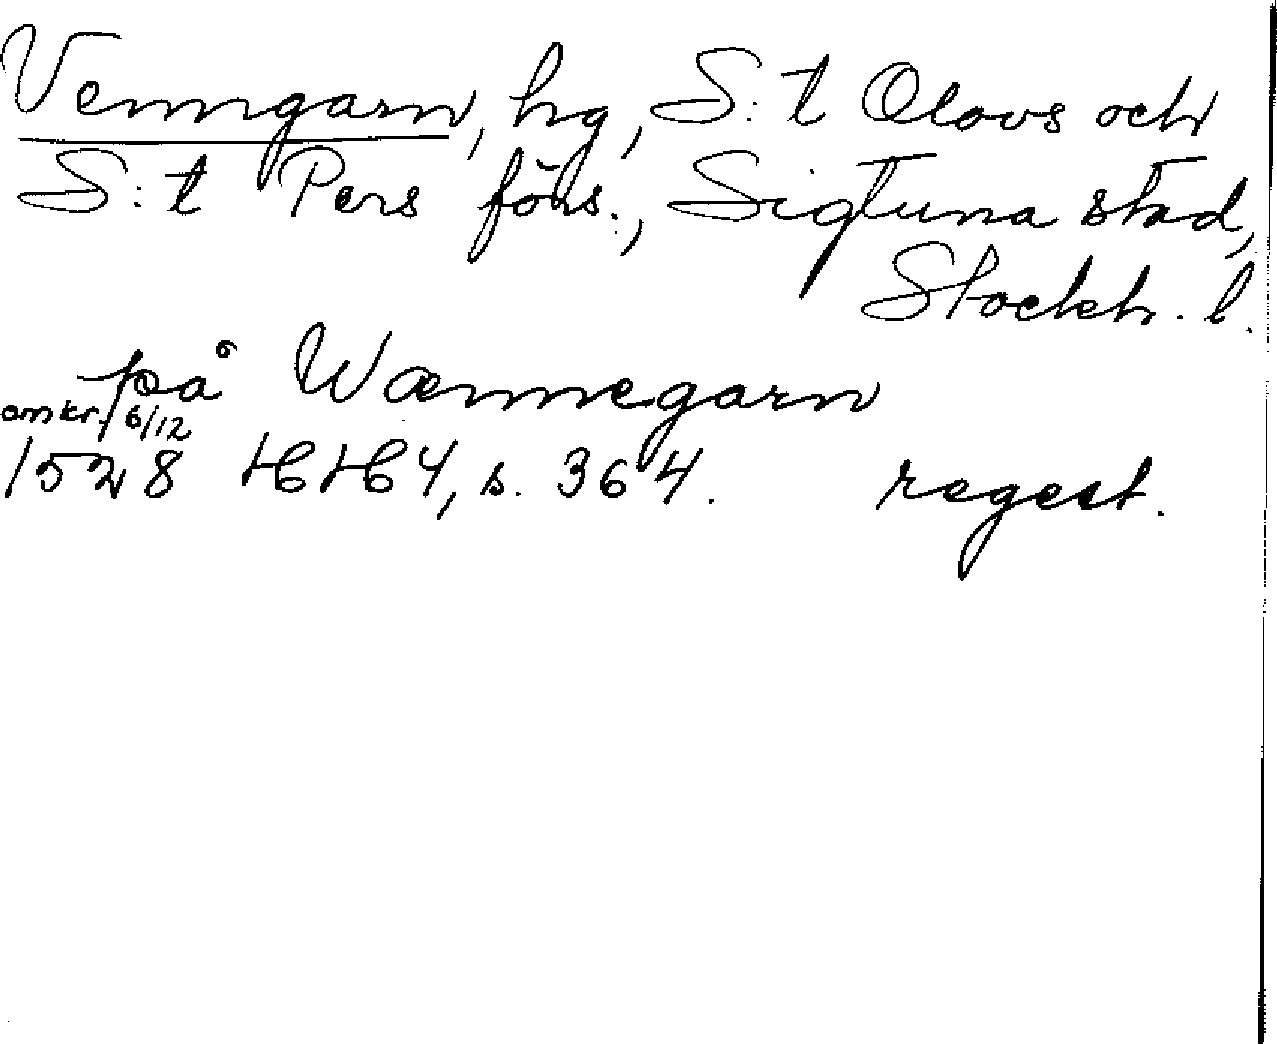 Venngarn, hg, S:t Olovs och
S:t Pers förs., Sigtuna stad,
Stockh. l.
på Wænnegarn
omkr. 6/12
1528 HH 4, s. 364. regest.